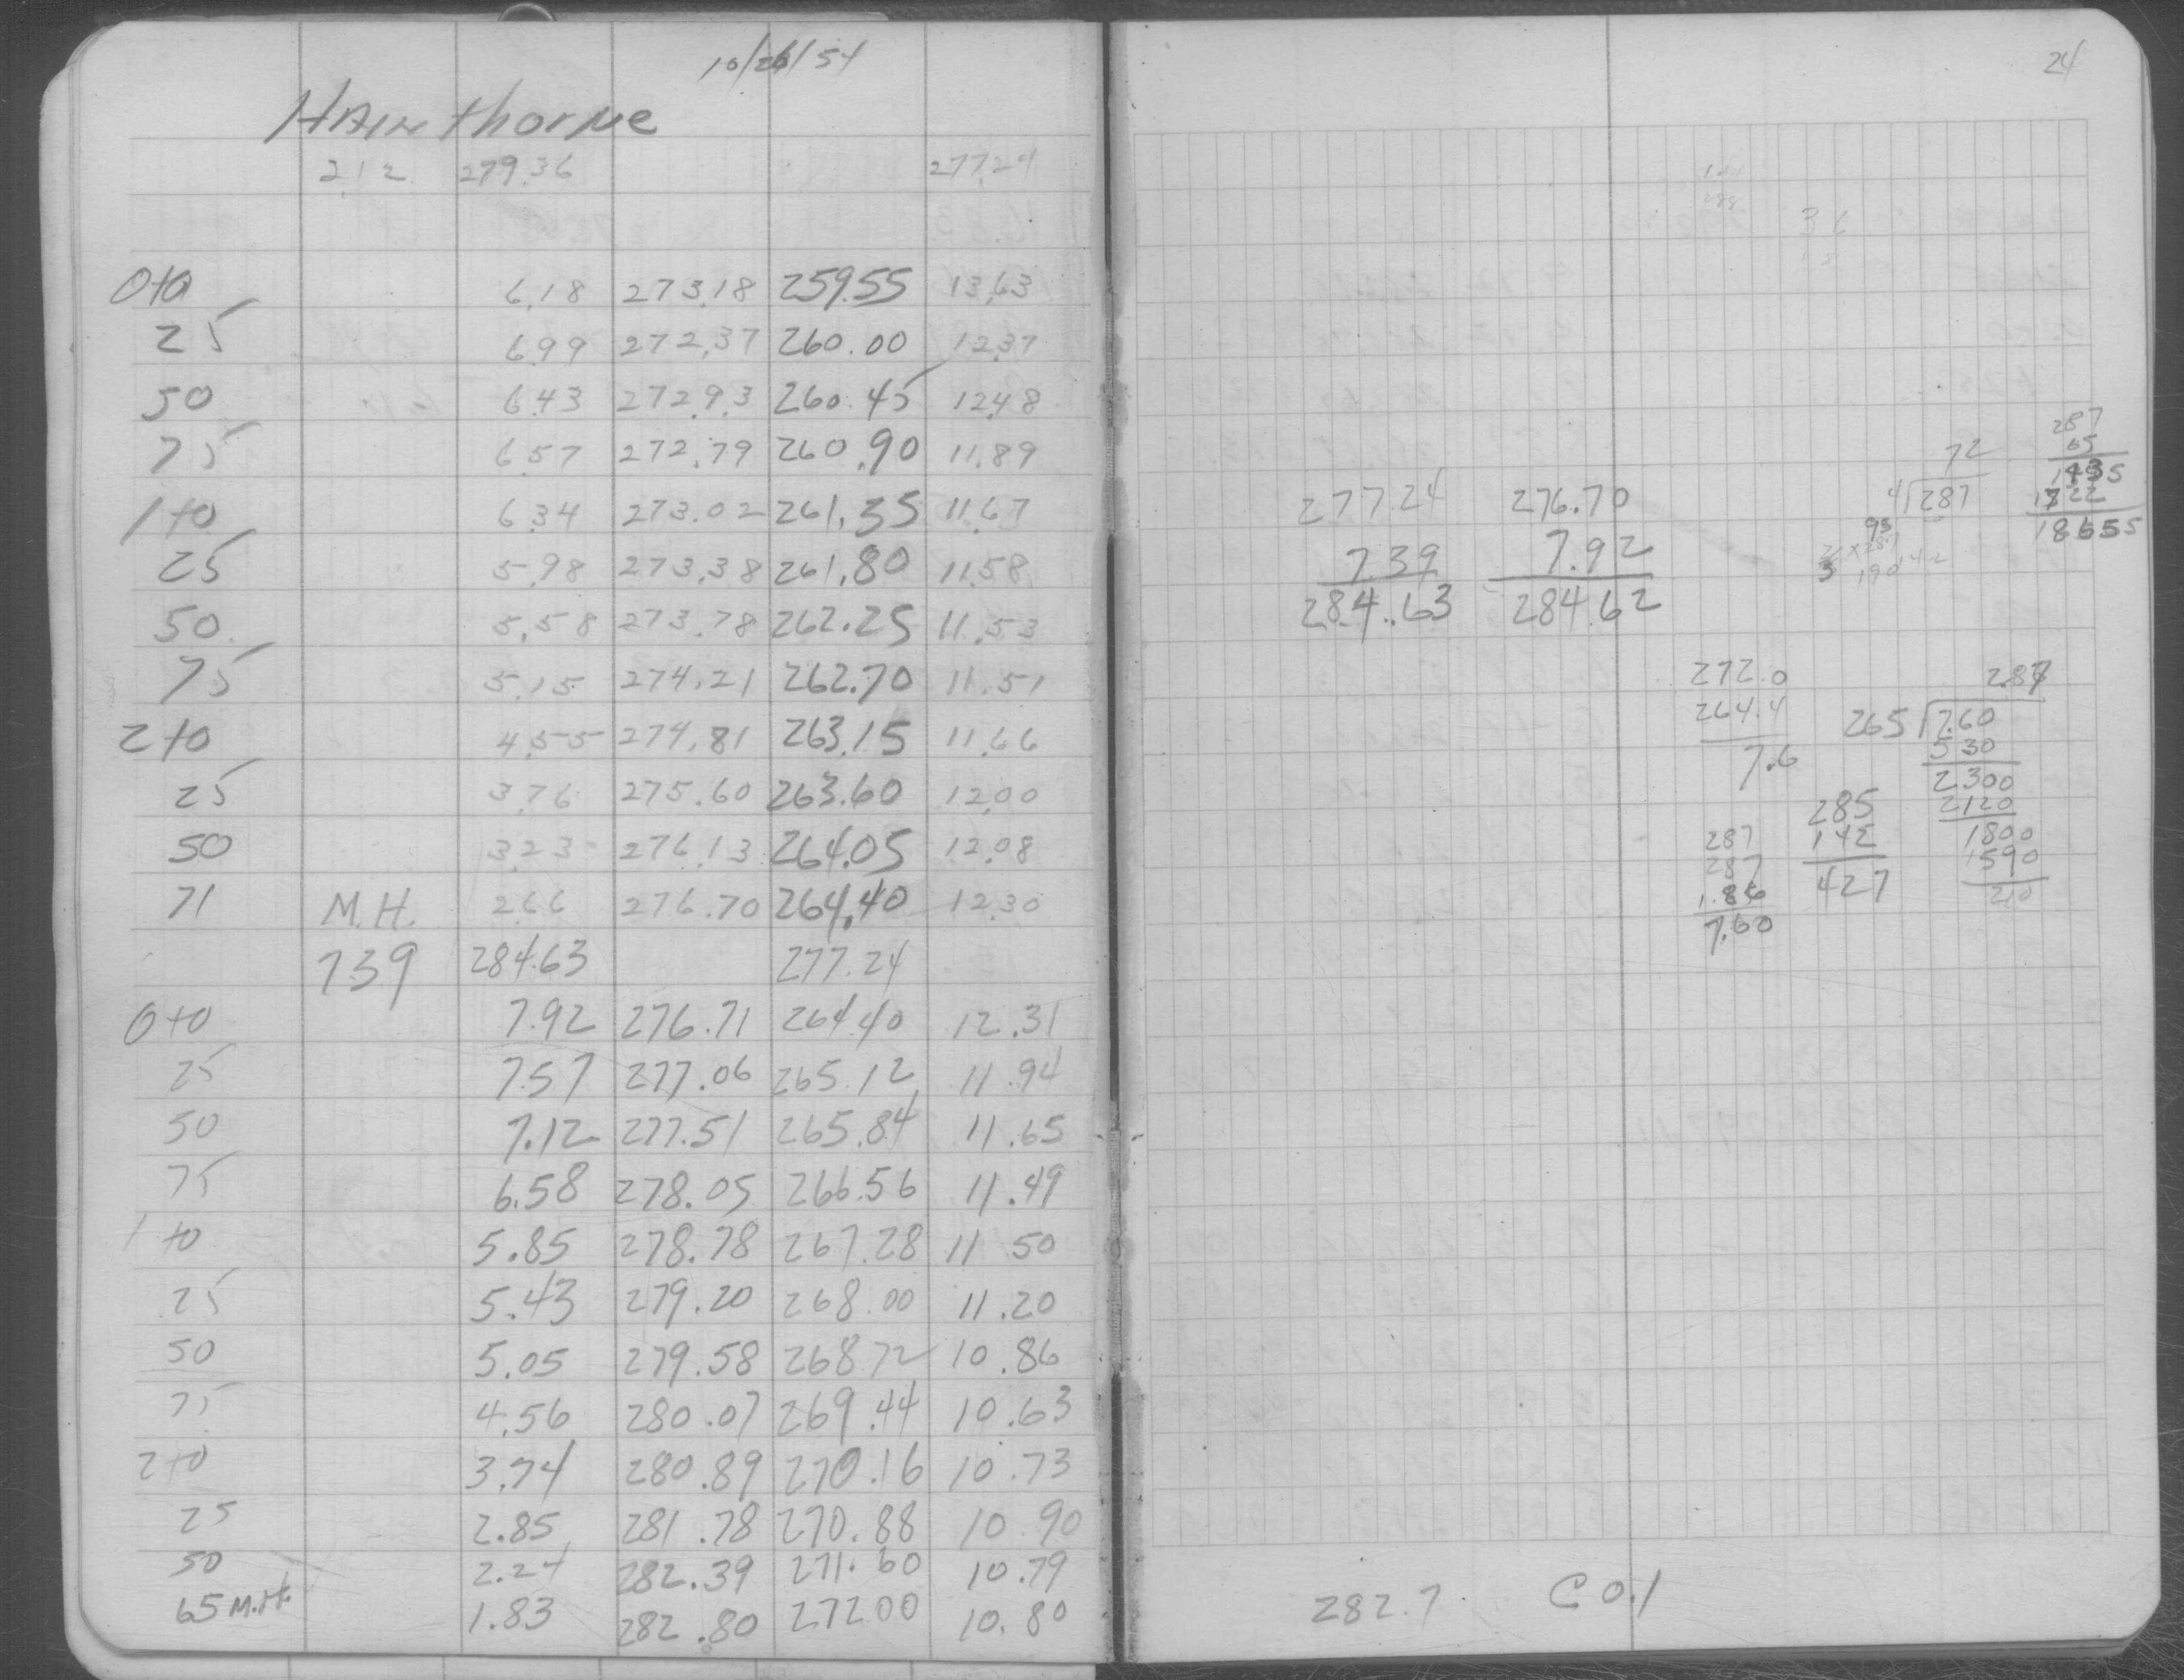 10/26/54
Hawthorne
2.12 279.36 277.24
0+0 6.18 273.18 259.55 13.63
25 6.99 272.37 260.00 12.37
50 6.43 272.93 260.45 12.48
75 6.57 272.79 260.90 11.89
1+0 6.34 273.02 261.35 11.67
25 5.98 273.38 261.80 11.58
50 5.58 273.78 262.25 11.53
75 5.15 274.21 262.70 11.51
2+0 4.55 274.81 263.15 11.66
25 3.76 275.60 263.60 12.00
50 3.23 276.13 264.05 12.08
71 M.H. 2.66 276.70 264.40 12.30
7.39 284.63 277.24
0+0 7.92 276.71 264.40 12.31
25 7.57 277.06 265.12 11.94
50 7.12 277.51 265.84 11.65
75 6.58 278.05 266.56 11.49
1+0 5.85 278.78 267.28 11 50
25 5.43 279.20 268.00 11.20
50 5.05 279.58 268 72 10.86
75 4.56 280.07 269.44 10.63
2+0 3.74 280.89 270.16 10.73
25 2.85 281.78 270.88 10 90
50 2.24 282.39 271.60 10.79
65 M.H. 1.83 282.80 272 00 10.80
24
36
287
65
1435
1722
18655
72
4 287
95
277.24 276.70
7.39 7.92
284.63 284.62
272.0
264.4
7.6
287
265 7.60
530
2300
2120
1800
1590
210
285
142
427
287
287
1.86
7.60
282.7 C 0.1